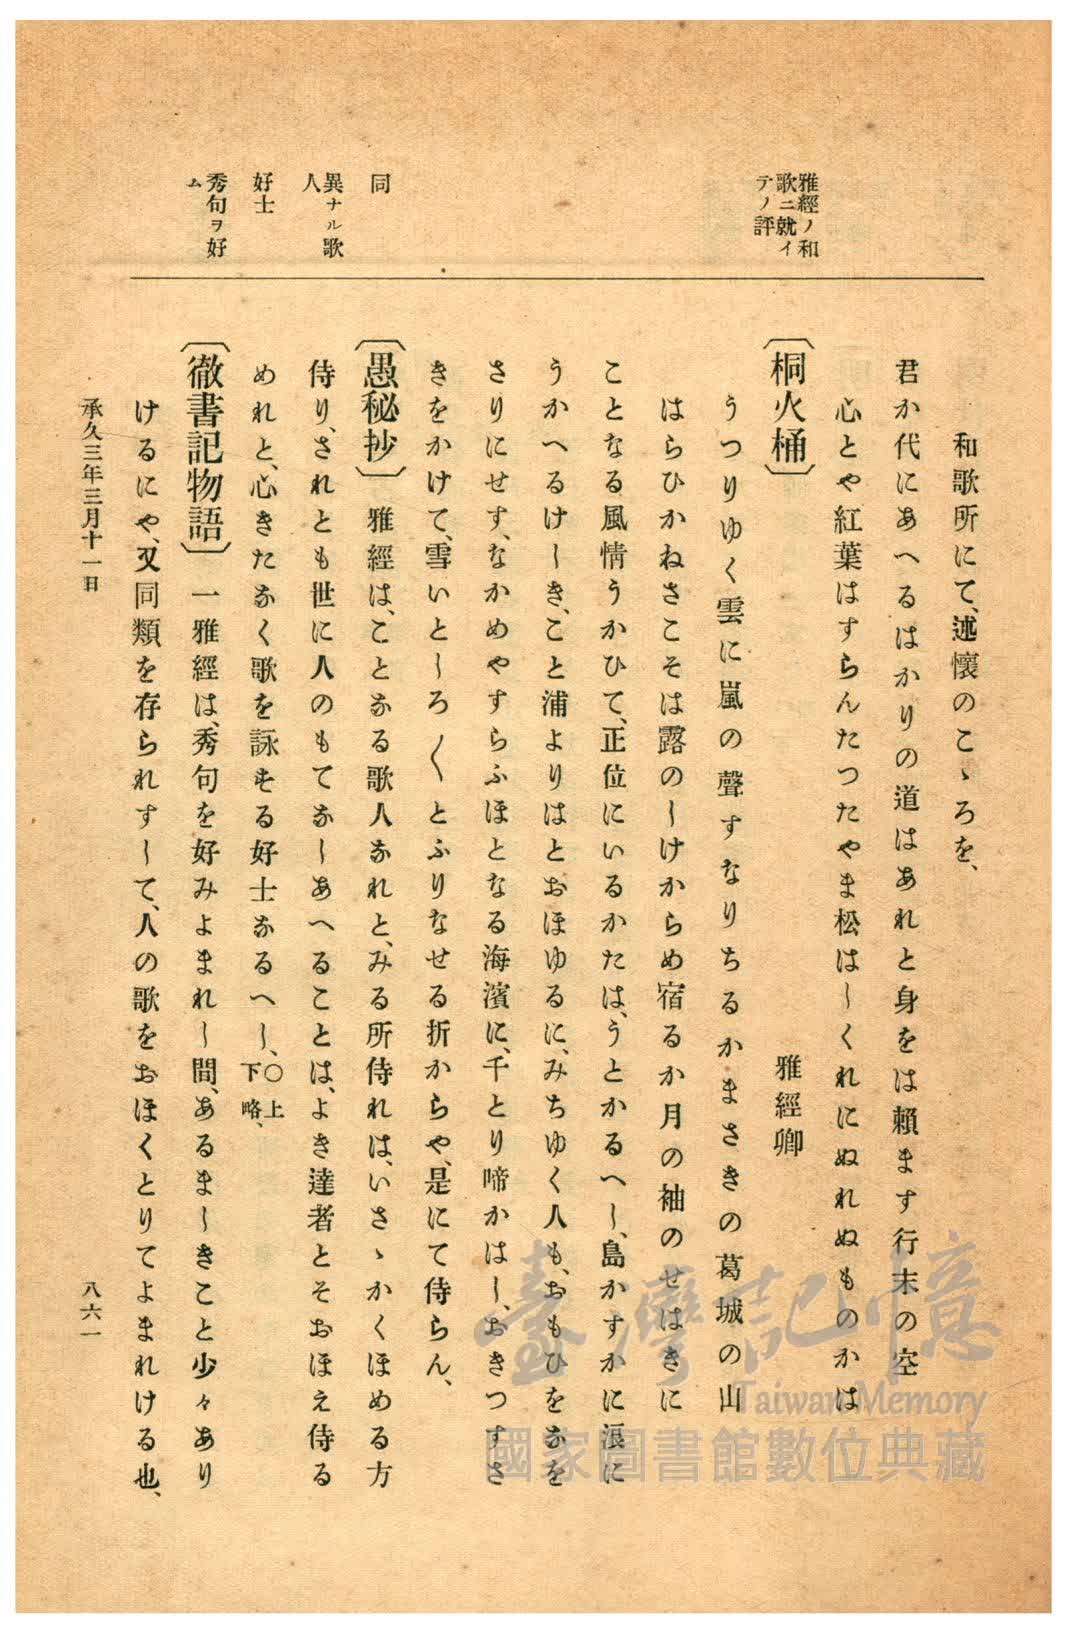 雅經ノ和
歌ニ就イ
テノ評
同
異ナル歌
人
好士
秀句ヲ好
ム
和歌所にて、述懷のこゝろを、
君か代にあへるはかりの道はあれと身をは賴ます行末の空
心とや紅葉はすらんたつたやま松はしくれにぬれぬものかは
〔桐火桶〕
雅經卿
うつりゆく雲に嵐の聲すなりちるかまさきの葛城の山
はらひかねさこそは露のしけからめ宿るか月の袖のせはきに
ことなる風情うかひて、正位にいるかたは、うとかるへし、島かすかに浪に
うかへるけしき、こと浦よりはとおほゆるに、みちゆく人も、おもひをなを
さりにせす、なかめやすらふほとなる海濱に、千とり啼かはし、おきつすさ
きをかけて、雪いとしろ〱とふりなせる折からや、是にて侍らん、
〔愚秘抄〕 雅經は、ことなる歌人なれと、みる所侍れは、いさゝかくほめる方
侍り、されとも世に人のもてなしあへることは、よき達者とそおほえ侍る
めれと、心きたなく歌を詠する好士なるへし、〇上下略、
〔徹書記物語〕 一雅經は、秀句を好みよまれし間、あるましきこと少々あり
けるにや、又同類を存られすして、人の歌をおほくとりてよまれける也、
承久三年三月十一日
八六一
臺灣記憶
Taiwan Memory
國家圖書館數位典藏